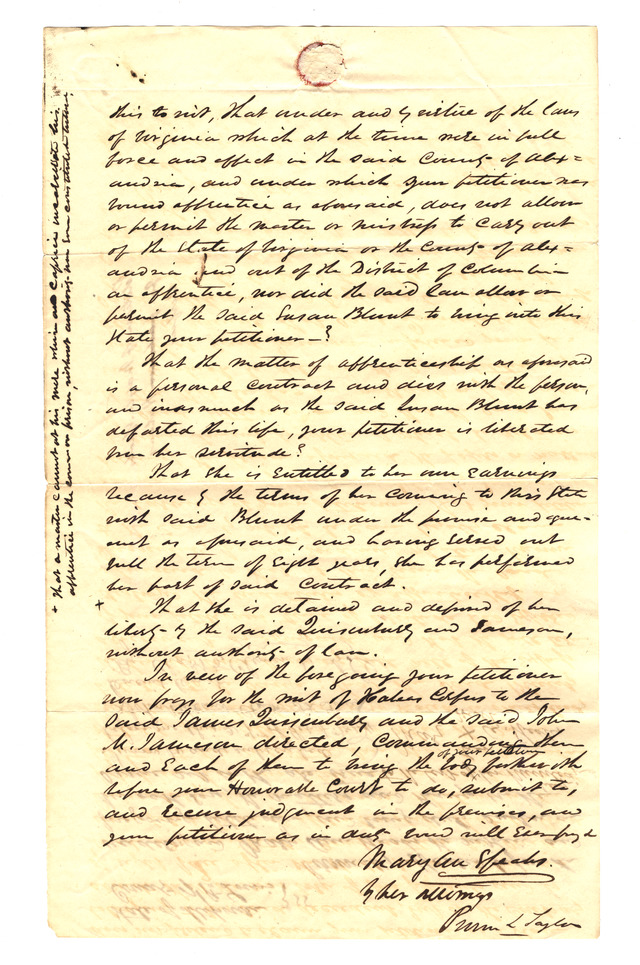 this to wit, that under and by virtue of the laws
of Virginia which at the time were in full
force and effect in the said County of Alex=
andria, and under which your petitioner was
bound apprentice as aforesaid, does not allow
or permit the master or mistress to carry out
of the State of Virginia or the County of Alex=
andria and out of the District of Columbia
an apprentice, nor did the said law allow or
permit the said Susan Blunt to bring into this
State your petitioner—?
That the matter of apprenticeship as aforesaid
is a personal contract and dies with the person,
and inasmuch as the said Susan Blunt has
departed this life, your petitioner is liberated
from her servitude?
That she is entitled to her own earnings
because by the terms of her coming to this State
with said Blunt under the promise and agree-
ment as aforesaid, and having served out
full the term of Eight years, she has performed
her part of said contract.
+ That she is detained and deprived of her
liberty by the said Quisenbury and Jameson,
without authority of law.
In view of the foregoing your petitioner
now prays for the writ of Habeas Corpus to the
said James Quisenbury and the said John
M. Jameson directed, commanding them
and Each of them to bring the body of your petitioner forthwith
before your Honorable Court to do, submit to,
and receive judgment in the premises, and
your petitioner as in duty bound will Ever pray &
Mary Ann Speaks.
by her attorneys
L Taylor
+ That a master cannot at his mere whim and caprice incarcerate his
apprentice in the common prison, without authority from constituted